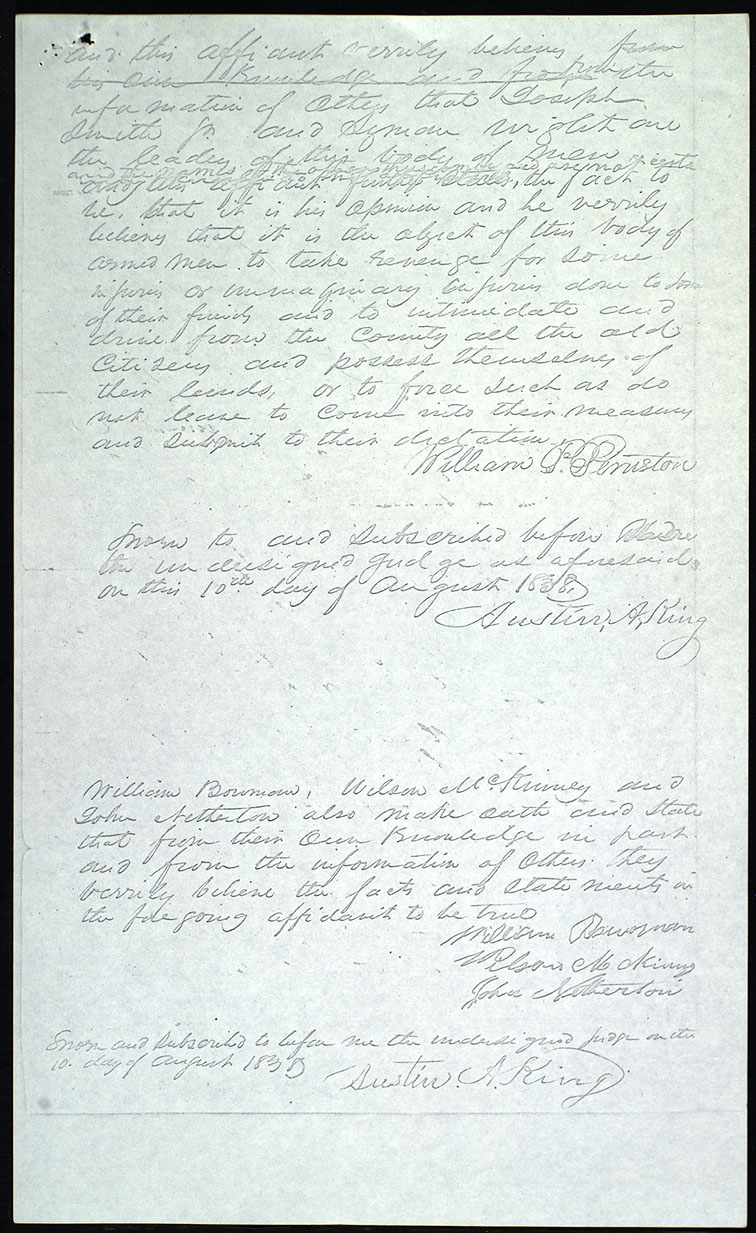 and this affiant verrily believes from
his own Knowledge and from the
information of Others that Joseph
Smith Jr and Lyman Wight are
the leaders of this body of men
and the names of the others
and this affiant further states, the fact to
be, that it is his opinion and he verrily
believes that it is the object of this body of
armed men to take revenge for some
injuries or immaginary injuries done to some
of their friends and to intimedate and
drive from the County all the old
Citizens and possess themselves of
their lands, or to force such as do
not leave to come into their measures
and submit to their dictation.
William P. Peniston
Sworn to and subscribed before
the undersigned Judge as aforesaid,
on this 10th day of August 1838,
Austin, A, King
William Bowman, Wilson McKinney and
John Netherton also make oath and state
that from their own Knowledge in part
and from the information of Others they
verrily believe the facts and statements in
the foregoing affidavit to be true
William Bowman
Wilson McKinney
John Netherton
Sworn and subscribed to before me the undersigned Judge on the
10. day of August 1838
Austin. A. King